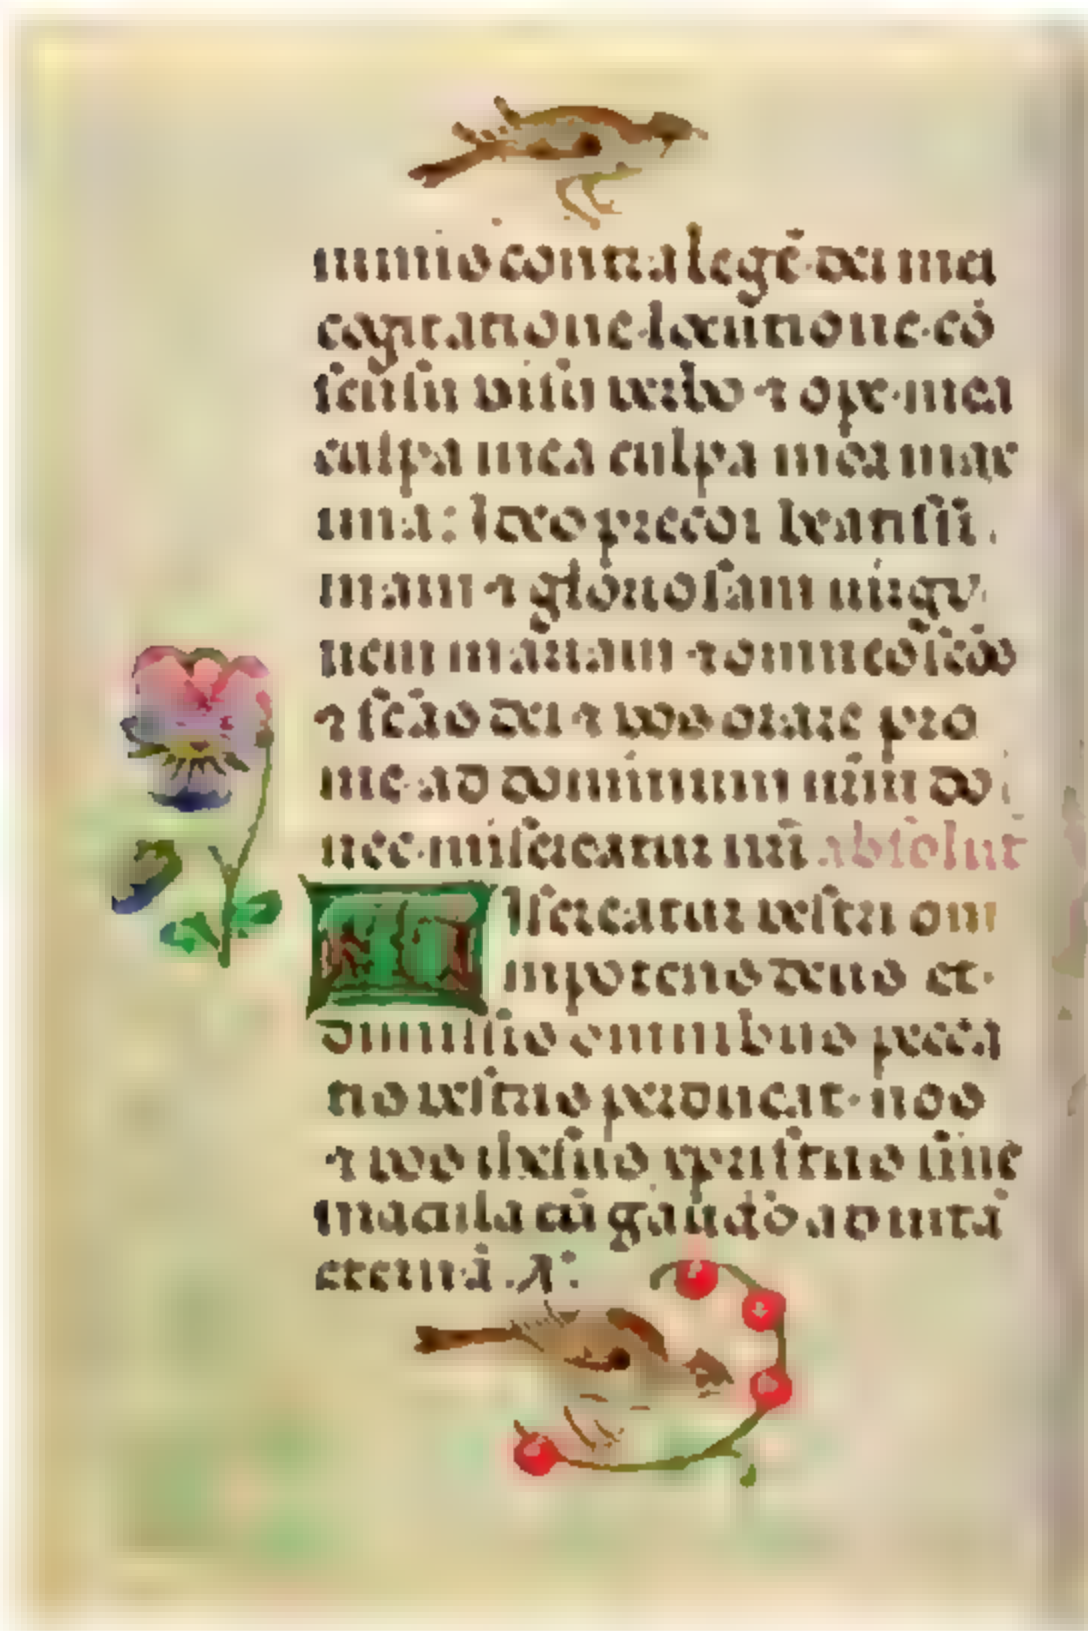 nimis contra legē dei mei
cogitatione locutione cō
sensu visu verbo ⁊ ope mea
culpa mea culpa mea max
ima: Ideo precor beatissi
mam ⁊ gloriosam virgi
nem mariam ⁊ omnes scōs
⁊ scās dei ⁊ vos orare pro
me ad dominum nrm do
nec misereatur nri absolut
Misereatur vestri om
nipotens deus et
dimissis omnibus pecca
tis vestris perducat nos
⁊ vos ihesus xpristus sine
macula cū gaudio ad vitā
eternā. A.